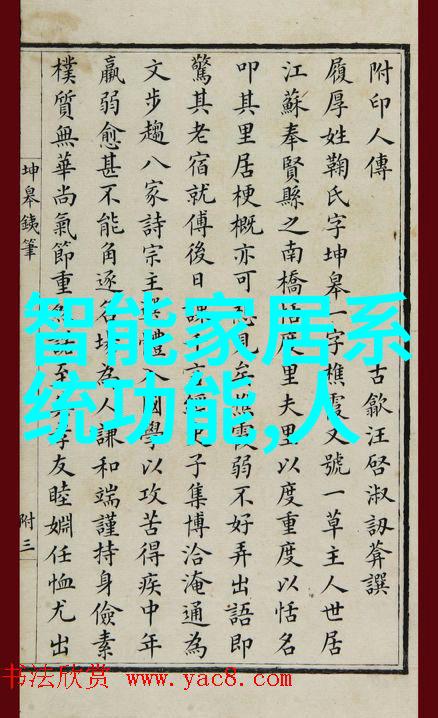 附印人傳
古歙汪啓淑訒葊撰
履厚姓鞠氏字坤皋一字樵霞又號一草主人世居
江蘇奉賢縣之南橋恬度里夫里以度重度以恬名
叩其里居梗概亦可見矣樵霞弱不好弄出語即
驚其老宿就傅後日課子集博洽淹通為
文步趨八家詩宗主體入國學以攻苦得疾中年
羸弱愈甚不能角逐名場為人謙和端謹持身儉素
樸質無華尚氣節重至友睦婣任恤尤出
坤皋銕筆
附三
智能家居系
统功能,人
书法欣赏 www.yac8.com